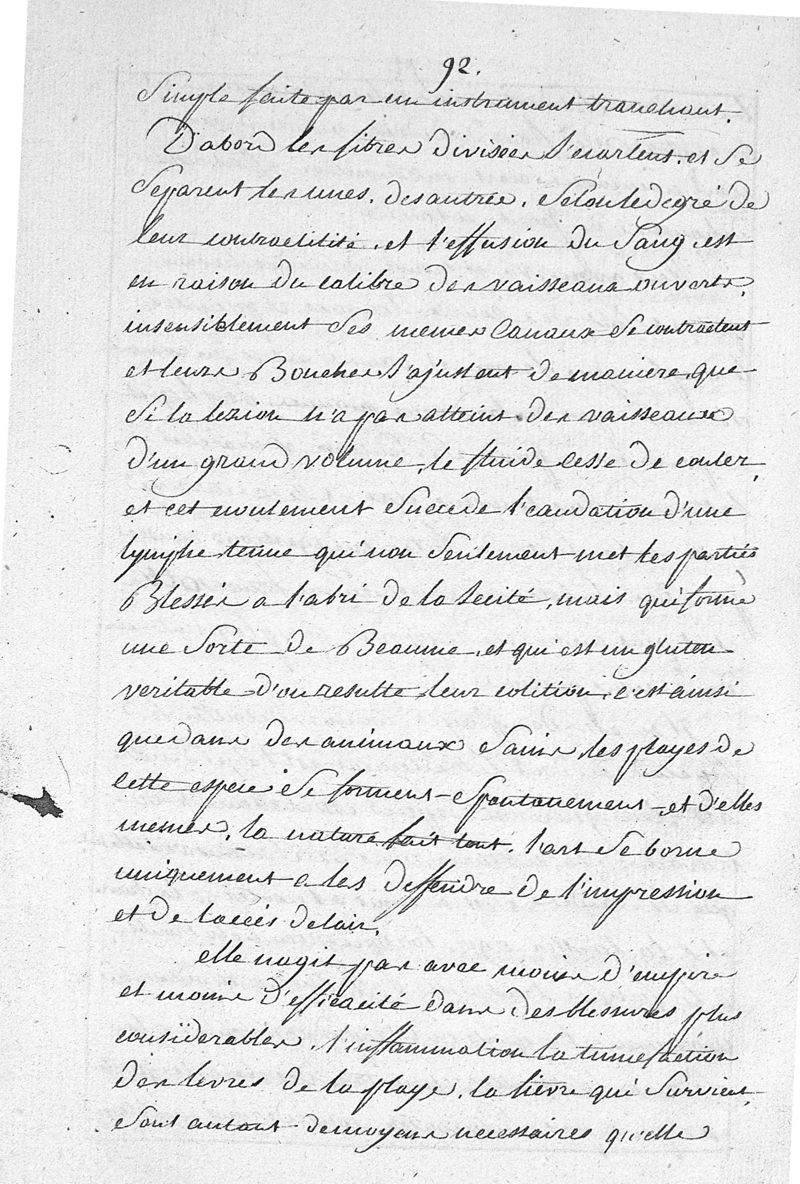 92.
Simple faite par un instrument tranchant.
Dabord les fibres divisées S'ecartent, et se
Separent les unes, des autres, Selon le degré de
leur contractilité, et l'effusion du Sang, est
en raison du calibre des vaisseaux ouverts,
insensiblement Ses memes Canaux Se contractent
et leurs Bouches S'ajustent de maniere, que
Si la lezion n'a pas atteint des vaisseaux
d'un grand volume, le fluide cesse de couler,
et cet ecoulement Succede l'exudation d'une
lymphe tenue qui non Seulement met les parties
Blesses a l'abri de la Secité, mais qui forme
une Sorte de Beaume, et qui est un gluten
veritable d'ou resulte, leur colition, c'est ainsi
que dans des animaux Sains, les playes de
cette espece Se forment Spontanement, et d'elles
memes, la nature fait tout, l'art Se borne
uniquement a les deffendre de l'impression
et de l'accès de l'air,
elle n'agit pas avec moins d'empire
et moins d'efficacité dans des blessures plus
considerables, l'inflammation la tumefaction
des levres de la playe, la fievre qui Survient,
Sont autant de moyens necessaires qu'elle